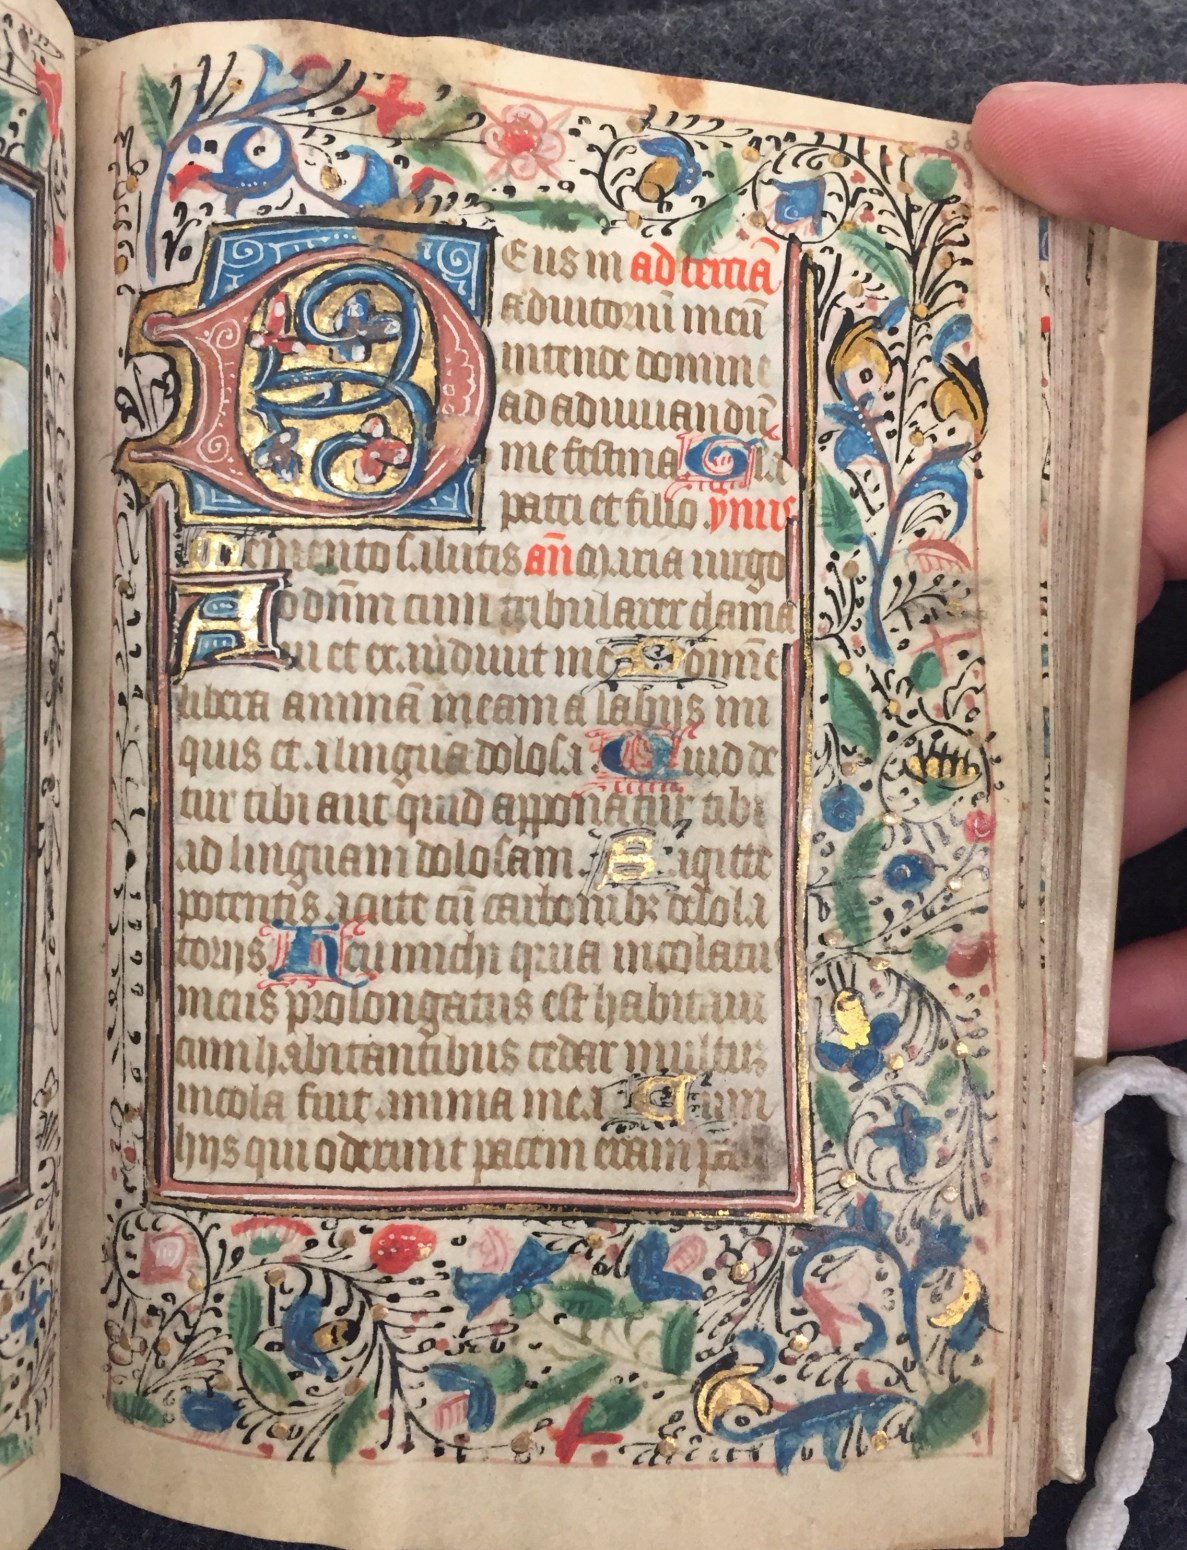 Deus in ad terciā
adiutoriū meū
intende domine
ad adiuuandū
me festina Gľa
patri et filio ynus
Memento salutis añ maria uirgo
Ad dñm cum tribularer clama
ui et exaudiuit me Domīe
libera animā meam a labijs ini
quis et a lingua dolosa Quid de
tur tibi aut quid apponatur tibi
ad linguam dolosam Sagitte
potentis acute cū carbonibꝫ desola
torijs Heu michi quia incolatus
meus prolongatus est habitaui
cum habitantibus cedar multum
incola fuit anima mea Cum
hijs qui oderunt pacem eram